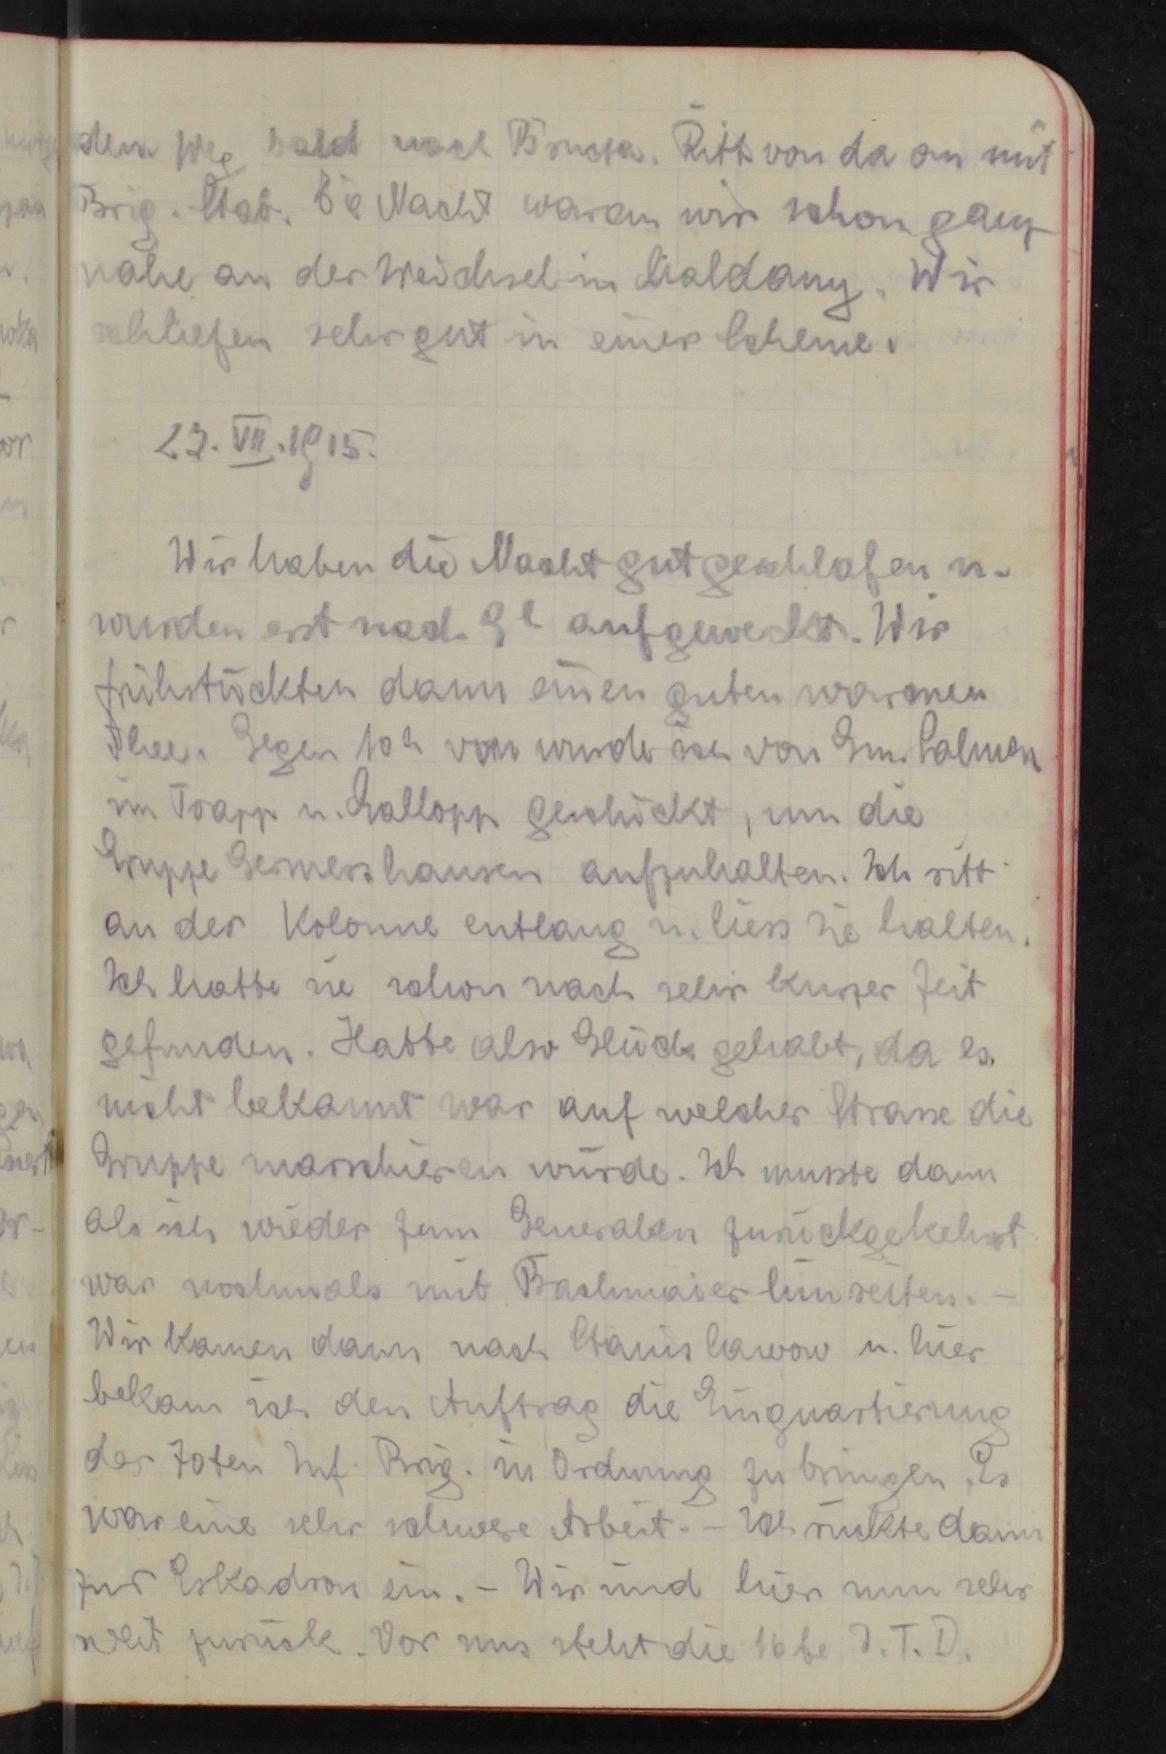 dem Weg bald nach Brucza. Ritt von da an mit
Brig. Stab. Die Nacht waren wir schon ganz
nahe an der Weichsel in Maldany. Wir
schliefen sehr gut in einer Scheune.
27. VII. 1915.
Wir haben die Nacht gut geschlafen u.
wurden erst nach 9h aufgeweckt. Wir
frühstückten dann einen guten warmen
Thee. Gegen 10h vorm wurde ich von Gm.
im Trapp u. Gallopp geschickt, um die
Gruppe Germershausen aufzuhalten. Ich ritt
an der Kolonne entlang u. liess sie halten.
Ich hatte sie schon nach sehr kurzer Zeit
gefunden. Hatte also Glück gehabt, da es
nicht bekannt war auf welcher Strasse die
Gruppe marschieren würde. Ich musste dann
als ich wieder zum Generalen zurückgekehrt
war nochmals mit Bachmaier hinreiten. -
Wir kamen dann nach Stanislawow u. hier
bekam ich den Auftrag die Einquartierung
der 70ten Inf. Brig. in Ordnung zu bringen. Es
war eine sehr schwere Arbeit. - Ich rückte dann
zur Eskadron ein. - Wir sind hier nun sehr
weit zurück. Vor uns steht die 16te I.T.D.